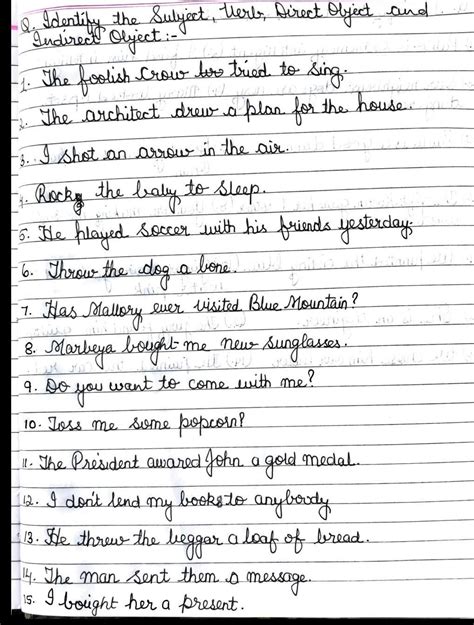 Q. Identify the Subject, Verb, Direct Object and
Indirect Object :-
1. The foolish Crow tried to sing.
2. The architect drew a plan for the house.
3. I shot an arrow in the air.
4. Rock the baby to sleep.
5. He played soccer with his friends yesterday.
6. Throw the dog a bone.
7. Has Mallory ever visited Blue Mountain?
8. Marbeya bought me new sunglasses.
9. Do you want to come with me?
10. Toss me some popcorn?
11. The President awared John a gold medal.
12. I don't lend my books to anybody
13. He threw the beggar a loaf of bread.
14. The man sent them a message.
15. I bought her a present.